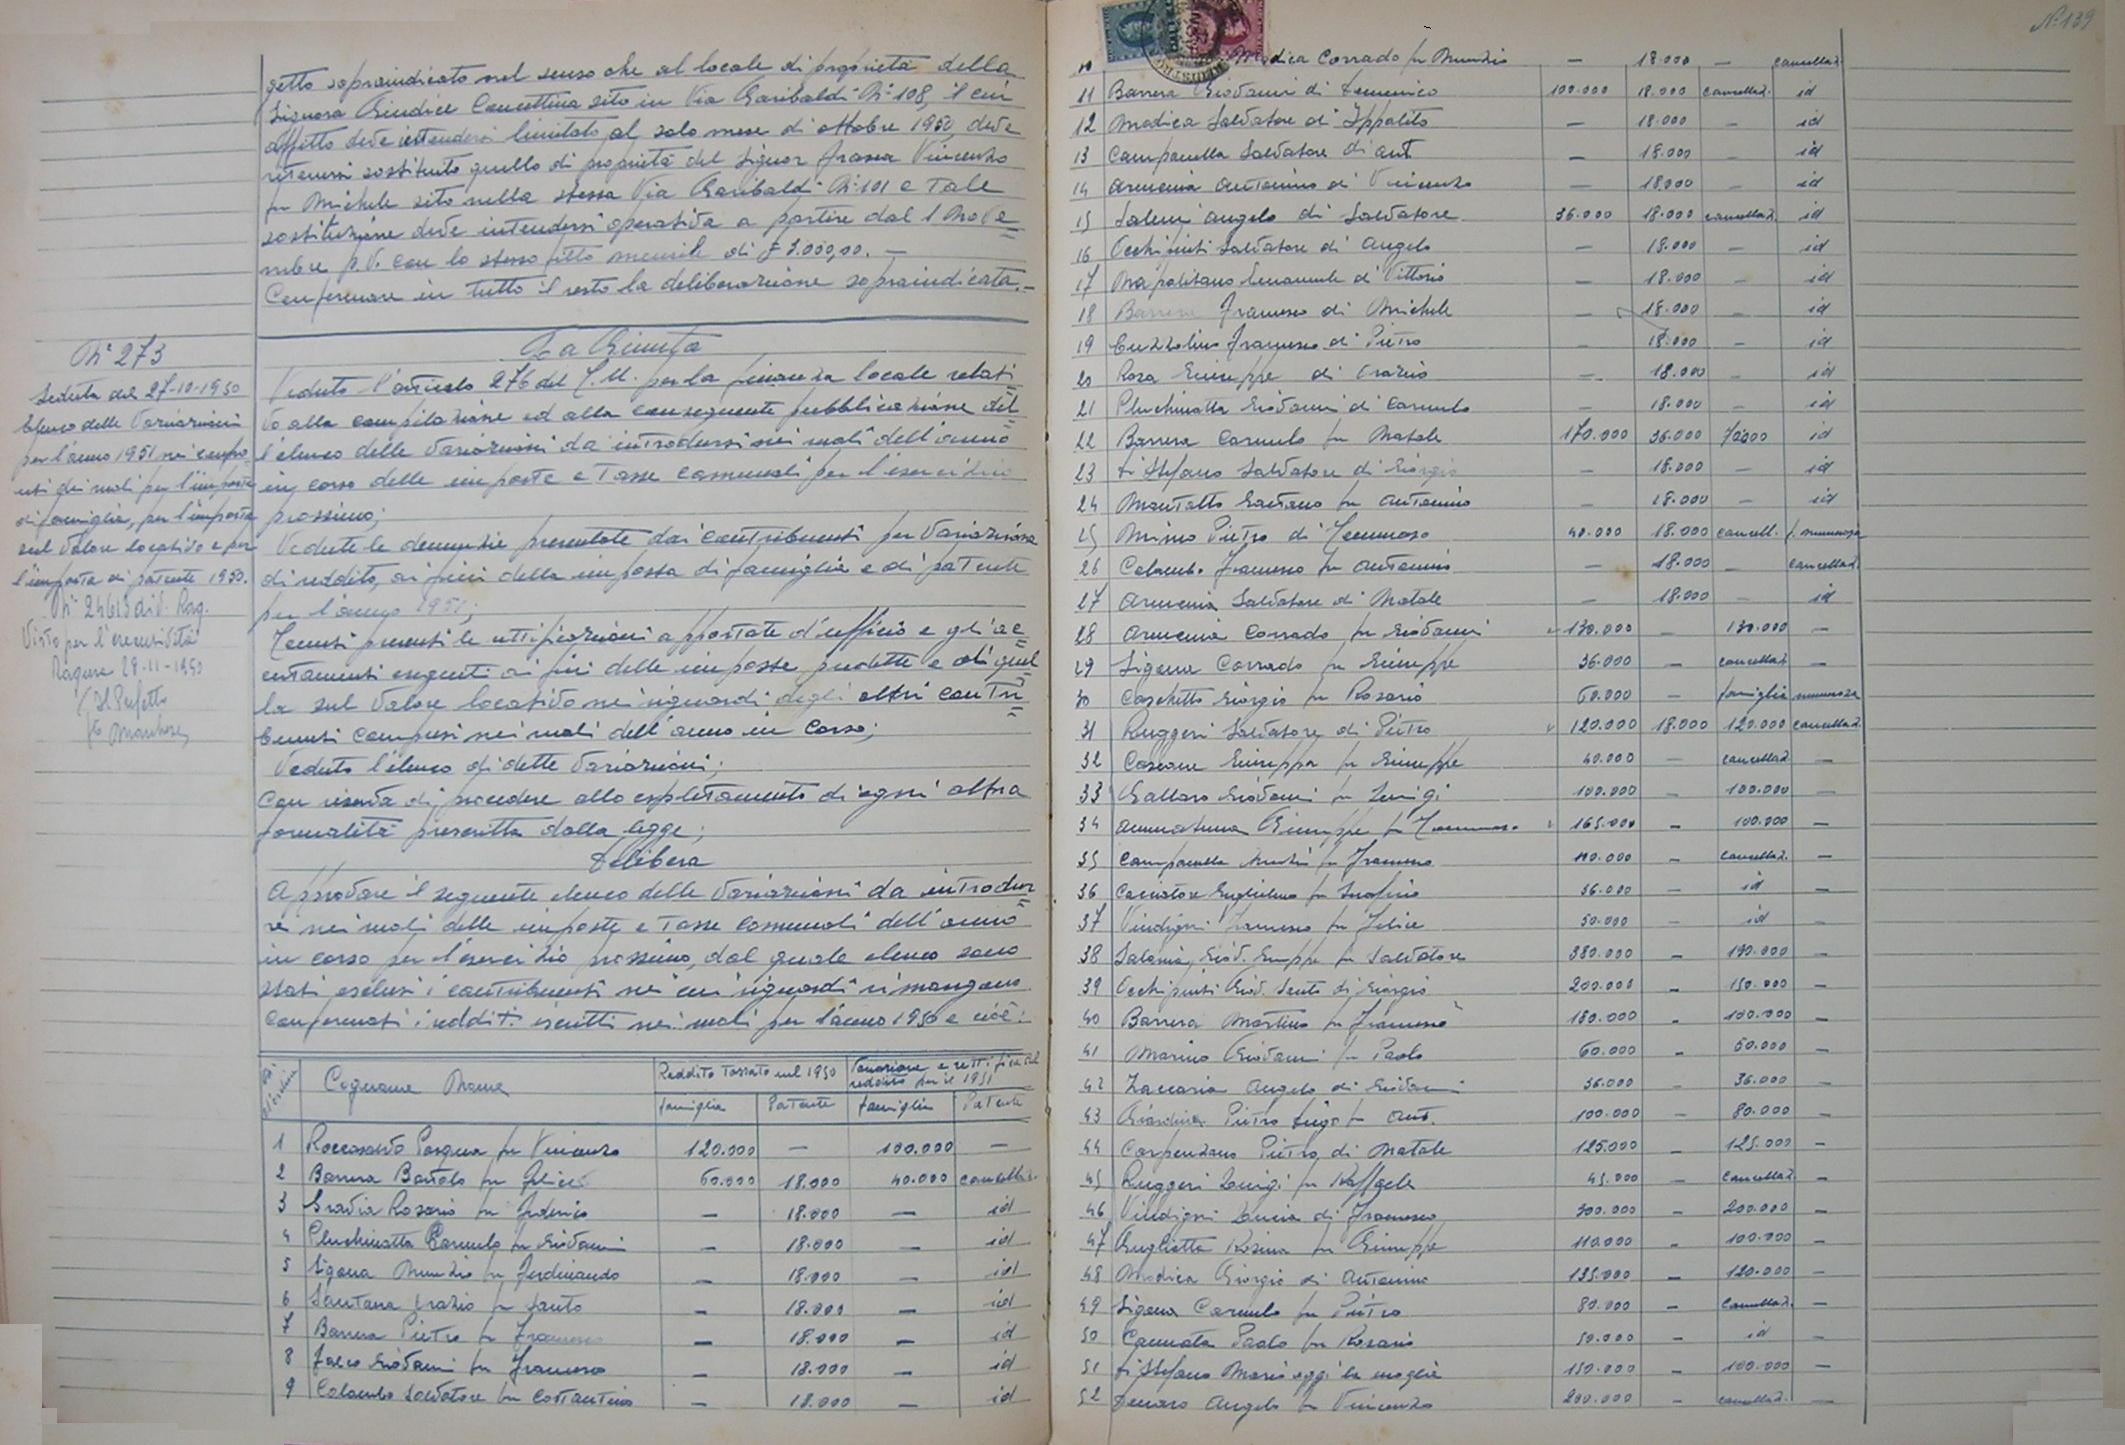 N° 139
getto sopraindicato nel senso che al locale di proprietà della
Signora Giudice Concettina sito in Via Garibaldi N° 108, il cui
affitto deve intendersi limitato al solo mese di ottobre 1950, deve
ritenersi sostituito quello di proprietà del Signor Frasca Vincenzo
fu Michele sito nella stessa Via Garibaldi N° 101 e tale
sostituzione deve intendersi operativa a partire dal 1 Nove=
mbre p.v. con lo stesso fitto mensile di £ 3.000,00. —
Confermare in tutto il resto la deliberazione sopraindicata. —
N° 273
Seduta del 27-10-1950
Elenco delle Variazioni
per l'anno 1951 nei
dei ruoli per l'imposta
di famiglia, per l'imposta
sul valore locativo e per
l'imposta di patente 1950.
N° 24613 div. Rag.
Visto per l'esecutività
Ragusa 28-11-1950
Il Prefetto
La Giunta
Veduto l'articolo 276 del T.U. per la finanza locale relati=
vo alla compilazione ed alla conseguente pubblicazione del=
l'elenco delle variazioni da introdursi nei ruoli dell'anno
in corso delle imposte e tasse comunali per l'esercizio
prossimo;
Vedute le denunzie presentate dai contribuenti per variazione
di reddito, ai fini della imposta di famiglia e di patente
per l'anno 1951;
Tenuti presenti le rettificazioni apportate d'ufficio e gli ac=
certamenti eseguiti ai fini delle imposte predette e di quel=
la sul valore locativo nei riguardi degli altri contri=
buenti compresi nei ruoli dell'anno in corso;
Veduto l'elenco di dette variazioni;
Con riserva di procedere allo espletamento di ogni altra
formalità prescritta dalla legge;
Delibera
Approvare il seguente elenco delle variazioni da introdur=
re nei ruoli delle imposte e tasse comunali dell'anno
in corso per l'esercizio prossimo, dal quale elenco sono
stati esclusi i contribuenti nei cui riguardi rimangono
confermati i redditi iscritti nei ruoli per l'anno 1950 e cioè:
N° d'ordine Cognome Nome Reddito Tassato nel 1950 Variazione e rettifica del reddito per il 1951
famiglia Patente famiglia Patente
1 Roccasalva Pasqua fu Vincenzo 120.000 — 100.000 —
2 Barrera Bartolo fu Felice 60.000 18.000 40.000 cancellaz.
3 Gradia Rosario fu Federico — 18.000 — id
4 Pluchinotta Carmelo fu Giovanni — 18.000 — id
5 Sigona Nunzio fu Ferdinando — 18.000 — id
6 Santana Orazio fu Santo — 18.000 — id
7 Barrera Pietro fu Francesco — 18.000 — id
8 Falco Giovanni fu Francesco — 18.000 — id
9 Colombo Salvatore fu Costantino — 18.000 — id
10 Modica Corrado fu Nunzio — 18.000 — cancellaz.
11 Barrera Giovanni di Domenico 100.000 18.000 cancellaz. id
12 Modica Salvatore di Ippolito — 18.000 — id
13 Campanella Salvatore di Ant. — 18.000 — id
14 Armenia Antonino di Vincenzo — 18.000 — id
15 Salemi Angelo di Salvatore 36.000 18.000 cancellaz. id
16 Occhipinti Salvatore di Angelo — 18.000 — id
17 Napolitano Emanuele di Vittorio — 18.000 — id
18 Barrera Francesco di Michele — 18.000 — id
19 Cuzzolino Francesco di Pietro — 18.000 — id
20 Rosa Giuseppe di Orazio — 18.000 — id
21 Pluchinotta Giovanni di Carmelo — 18.000 — id
22 Barrera Carmelo fu Natale 170.000 36.000 id
23 Di Stefano Salvatore di Giorgio — 18.000 — id
24 Gaetano fu Antonino — 18.000 — id
25 Pietro di Tommaso 40.000 18.000 cancell. f. numerosa
26 Colombo Francesco fu Antonino — 18.000 — cancellaz.
27 Armenia Salvatore di Natale — 18.000 — id
28 Armenia Corrado fu Giovanni 130.000 — 130.000 —
29 Sigona Corrado fu Giuseppe 36.000 — cancellaz. —
30 Caschetto Giorgio fu Rosario 60.000 — famiglia numerosa
31 Ruggeri Salvatore di Pietro 120.000 18.000 120.000 cancellaz.
32 Giuseppa fu Giuseppe 40.000 — cancellaz. —
33 Gallaro Giovanni fu Luigi 100.000 — 100.000 —
34 Ammatuna Giuseppe fu Tommaso 165.000 — 100.000 —
35 Campanella Nunzio fu Francesco — cancellaz. —
36 Cacciatore Guglielmo fu Serafino 36.000 — id —
37 Vindigni Francesco fu Felice 50.000 — id —
38 Salonia Giov. Giuseppe fu Salvatore 380.000 — 190.000 —
39 Occhipinti Giov. Santo di Giorgio 200.000 — 150.000 —
40 Barrera Martino fu Francesco 160.000 — 100.000 —
41 Marino Giovanni fu Paolo 60.000 — 60.000 —
42 Zaccaria Angelo di Giovanni 36.000 — 36.000 —
43 Giardina Pietro Luigi fu Ant. 100.000 — 80.000 —
44 Carpenzano Pietro di Natale 125.000 — 125.000 —
45 Ruggeri Luigi fu Raffaele 45.000 — cancellaz. —
46 Vindigni Lucia di Francesco 300.000 — 200.000 —
47 Guglietta Rosina fu Giuseppe 110.000 — 100.000 —
48 Modica Giorgio di Antonino 135.000 — 120.000 —
49 Sigona Carmelo fu Pietro 80.000 — cancellaz. —
50 Cannata Paolo fu Rosario 50.000 — id —
51 Di Stefano Mario oggi la moglie 150.000 — 100.000 —
52 Denaro Angelo fu Vincenzo 200.000 — cancellaz. —